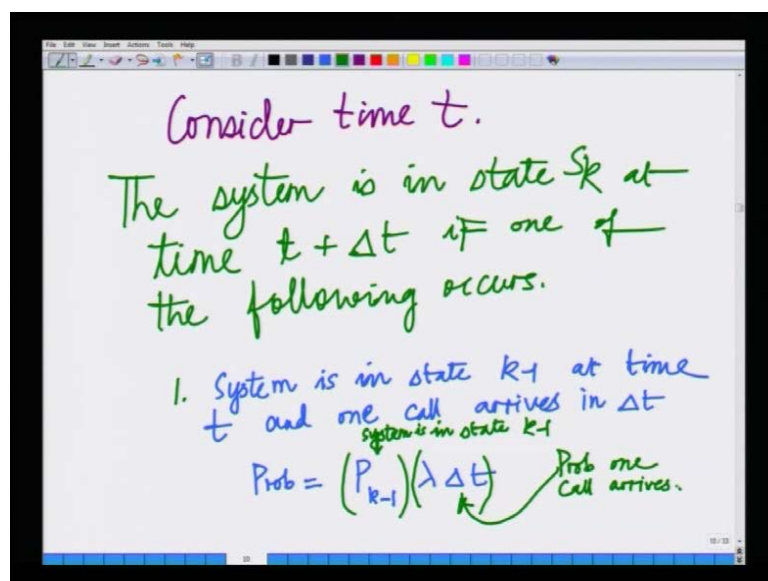 File Edit View Insert Actions Tools Help
Consider time t.
The system is in state Sk at
time t + Δt if one of
the following occurs.
1. System is in state k-1 at time
t and one call arrives in Δt
system is in state k-1
Prob = (P k-1)(λ Δt)
Prob one
call arrives.
10